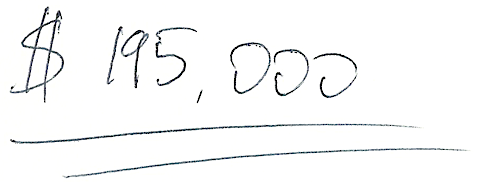 $ 195,000